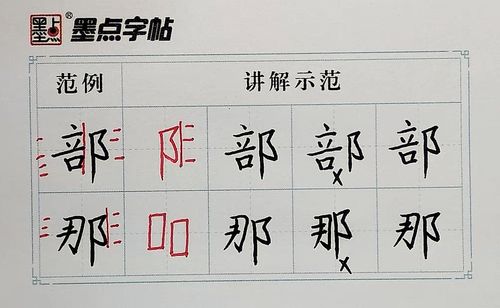 墨点® 墨点字帖
范例 讲解示范
部 阝 部 部 部
那 那 那 那